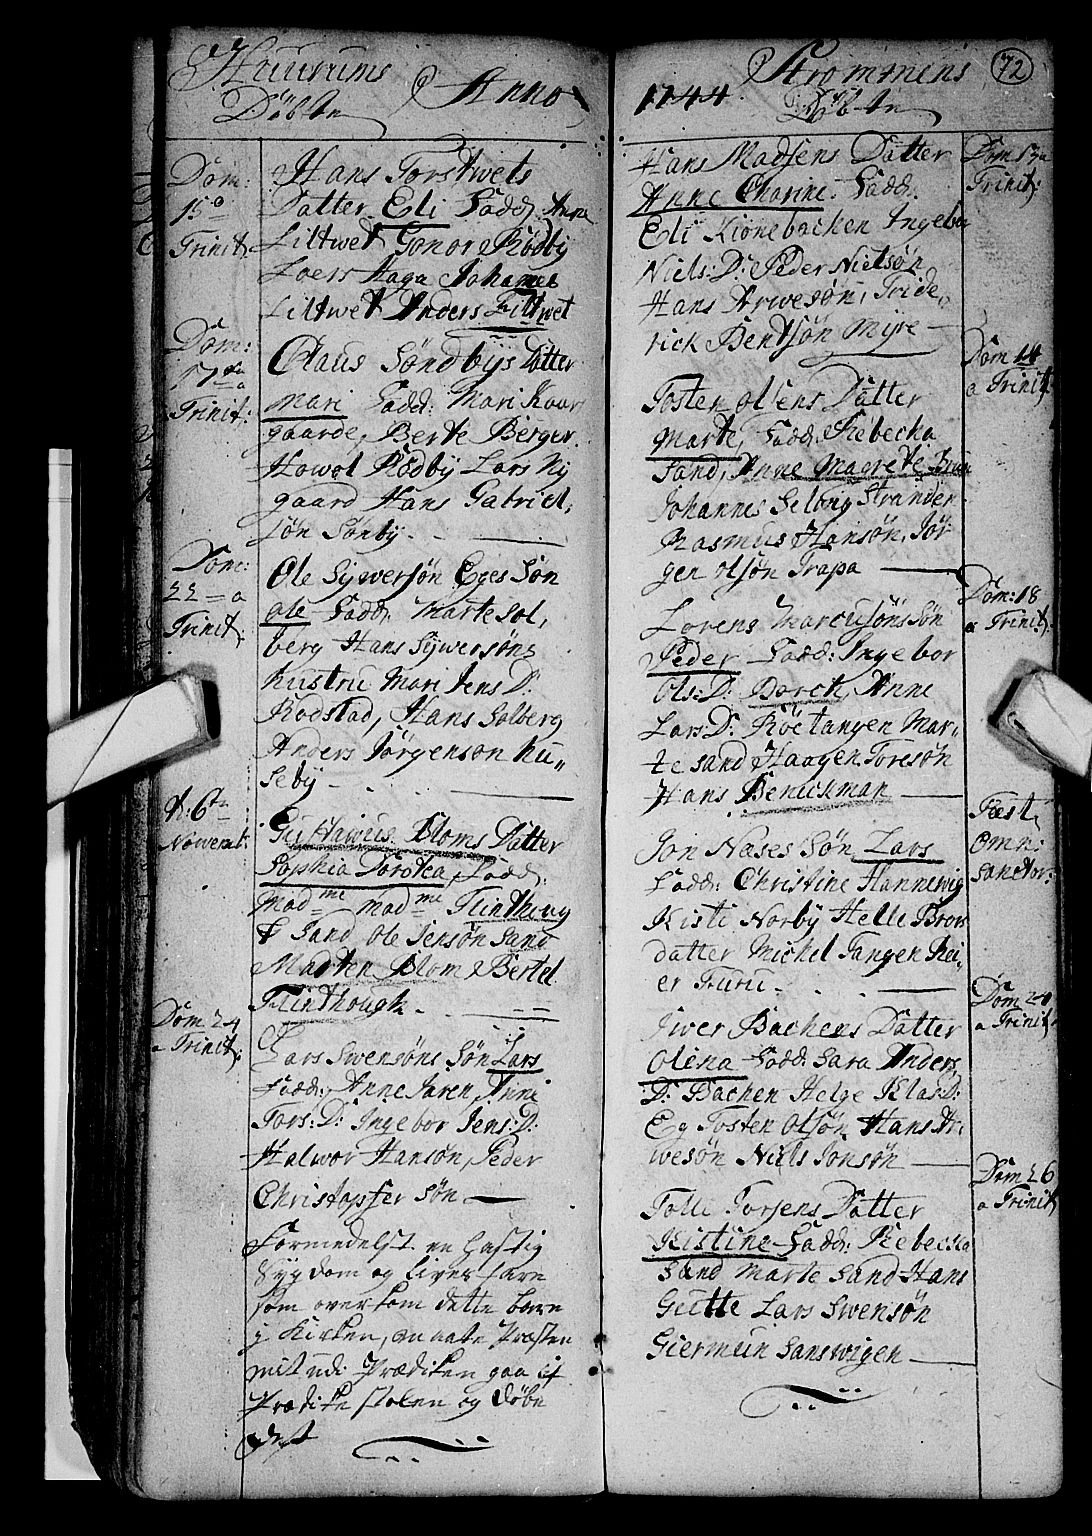 Huurums Anno
Döbte
Dom:
15 a
Trinit:
Hans Torstwets
Datter Eli Fadd. Anne
Liltwet Gonor Rödby
Loers Haga Johannes
Liltwet Anders Liltwet
Dom:
17 a
Trinit:
Claus Söndbÿs Datter
Mari Fadd: Mari Kaar
gaarde, Berte Berger.
Howol Rödbÿ Lars Ny
gaard Hans Gabriel,
sön Sönby.
Dom:
22 a
Trinit:
Ole Sywersön Eges Sön
Ole Fadd: Marte Sol,
berg Hans Sywersöns
Hustru Mari Jens D:
Rodstad, Hans Solberg
Anders Jörgenson Hu„
sebÿ
d: 6te
Novembr:
Gustawus Bloms Datter
Sophia Dorotea, Fadd:
Madme madme Flinthoug
& Sand Ole Jensön Sand
Madten Blom Bertel
Flinthough.
Dom 24
a Trinit:
Lars Swensöns Sön Lars
Fadd: Anne Jaren, Anne
Tors: D: Ingebor Jens: D:
Halwor Hansön, Peder
Christopffer sön
Formedelst en hastig
Sÿgdom og lives fare
som overkom dette barn
i Kirken, maate Præsten
mit udi Prædiken gaa af
Prædike stolen og döbe
det
72
1744 Strommens
Döbte
Dom 13 a
Trinit:
Hans Madsens Datter
Anne Chatrine. Fadd.
Eli Kionebacken Ingebor
Niels: D: Peder Nielsön
Hans Arwesön, Fride„
rick Bentsön Myre
Dom 14
a Trinit:
Toster Olsens Datter
Marte, Fadd. Rebecka
Sand, Anne Magrete Brun
Johannes Selvig Strander
Rasmus Hansön, Jör
gen Olsön Trapa
Dom: 18
a Trinit:
Lorens Marcusöns Sön
Peder Fadd: Ingebor
Ols: D: Borck, Anne
Lars: D: Röetangen Mar„
te Sand Haagen Toresön
Hans Benickman
Fest
Omn:
Sanctor:
Jon Nases Sön, Lars
Fadd: Christine Hannewig
Kisti Norby Helle Brors
datter Michel Tangen Rei„
er Furu.
Dom 24
a Trinit:
Iwer Bachens Datter
Olena Fadd: Sara Anders
D: Bachen Helge Klas: D:
Eg Tosten Olsön Hans Ar
wesön Niels Jonsön
Dom 26
a Trinit:
Tolle Torsens Datter
Kistine Fadd: Rebecka
Sand Marte Sand Hans
Gutte Lars Swensön
Giermun Sanswigen